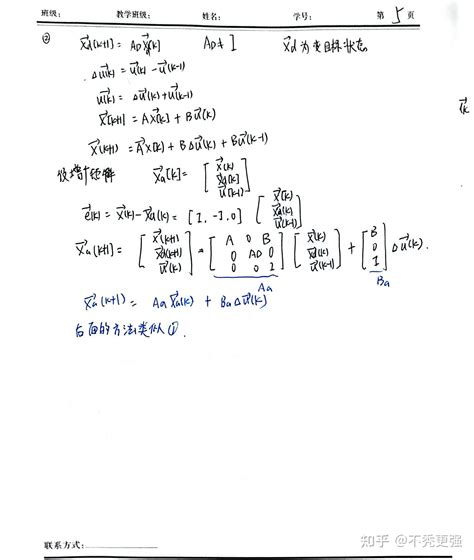 班级： 教学班级： 姓名： 学号： 第 5 页
② x⃗d[k+1] = AD x⃗d[k] AD ≠ I x⃗d 为变目标状态
Δu⃗(k) = u⃗(k) - u⃗(k-1)
u⃗(k) = Δu⃗(k) + u⃗(k-1)
x⃗[k+1] = A x⃗[k] + B u⃗(k)
x⃗(k+1) = A x⃗[k] + B Δu⃗(k) + B u⃗(k-1)
x⃗a[k] = [ x⃗(k) ; x⃗d[k] ; u⃗(k-1) ]
e⃗(k) = x⃗(k) - x⃗d(k) = [ I, -I, 0 ] [ x⃗[k] ; x⃗d(k) ; u⃗(k-1) ]
x⃗a[k+1] = [ x⃗(k+1) ; x⃗d(k+1) ; u⃗(k) ] = [ A 0 B ; 0 AD 0 ; 0 0 I ] [ x⃗(k) ; x⃗d(k) ; u⃗(k-1) ] + [ B ; 0 ; I ] Δu⃗(k).
Aa Ba
x⃗a(k+1) = Aa x⃗a(k) + Ba Δu⃗(k)
后面的方法类似①.
联系方式：
知乎 @不秃更强